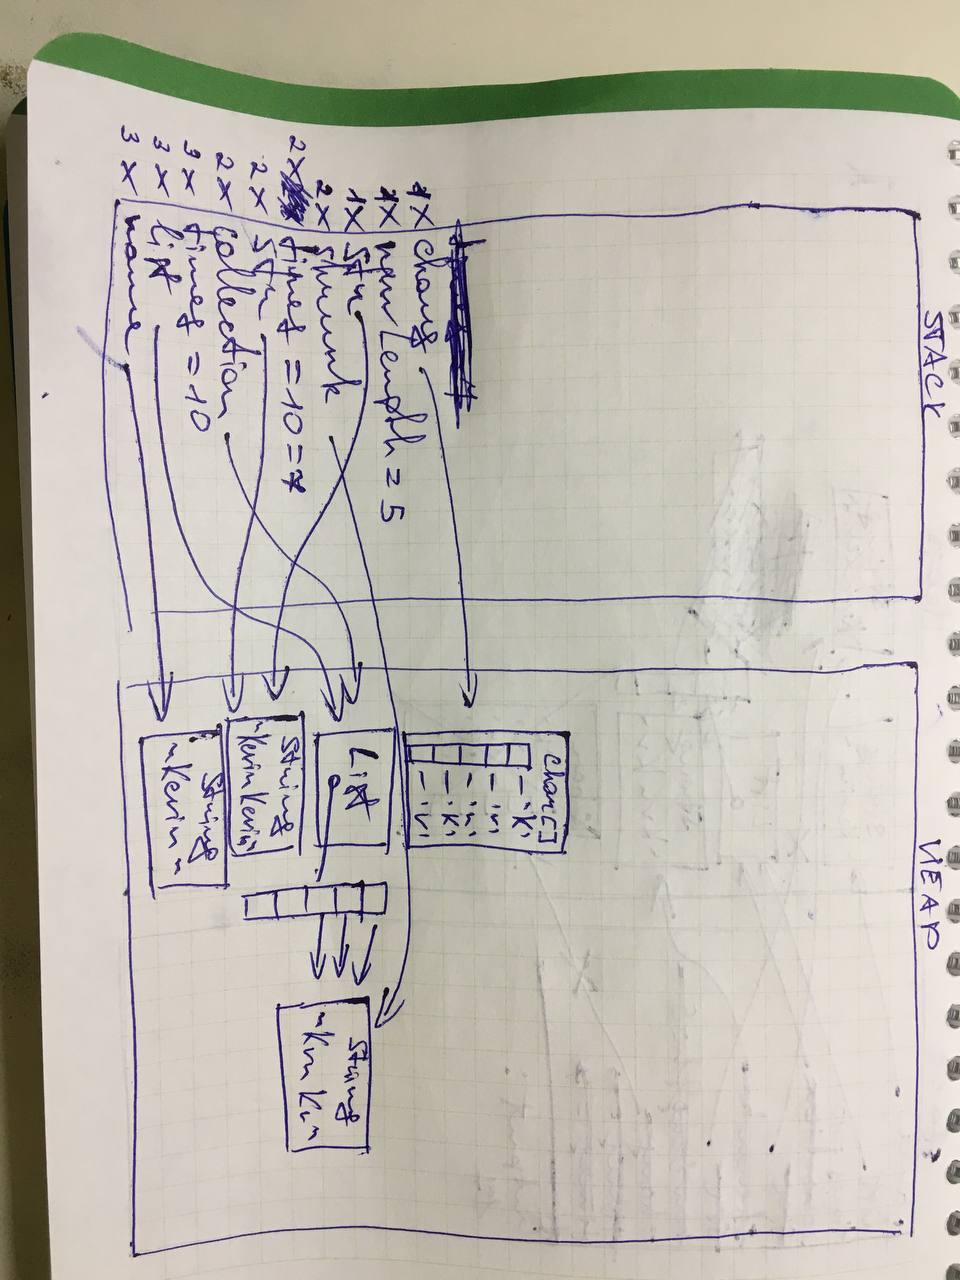 STACK
1x chars
1x newLength = 5
1x Str
2x shrunk
2x times = 10 = 7
2x Str
2x collection
3x times = 10
3x list
3x name
HEAP
char[]
- 'k'
- 'v'
- 'n'
- 'k'
- 'v'
List
String
"KevinKevin"
String
"Kevin"
String
"Kvn Kv"